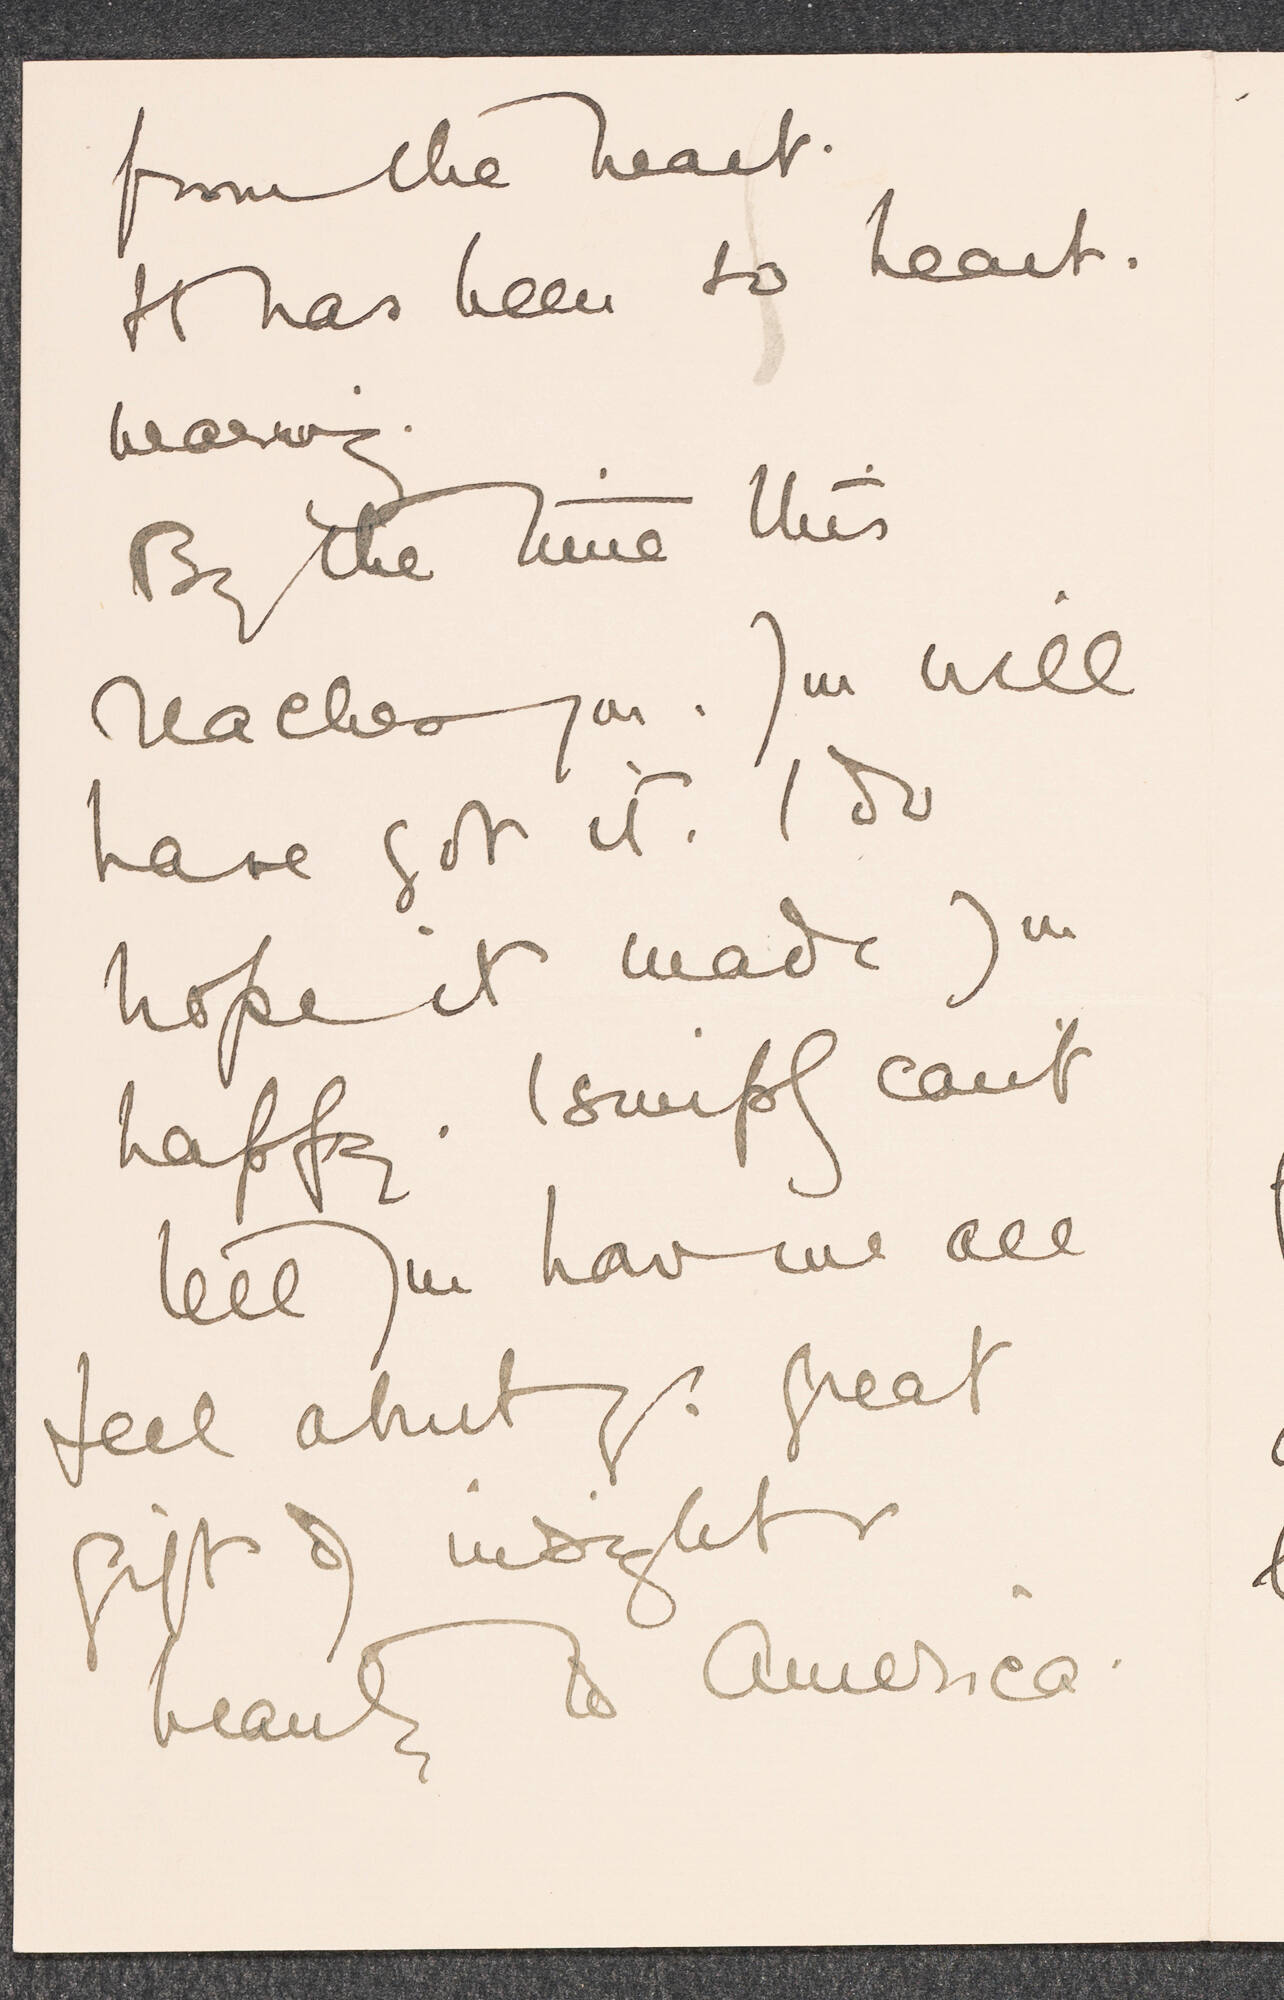 from the heart.
It has been so heart.
warming.
By the time this
reaches you. You will
have got it. I do
hope it made you
happy. I simply can't
tell you how we all
feel about yr. great
gift of insight &
beauty to America.